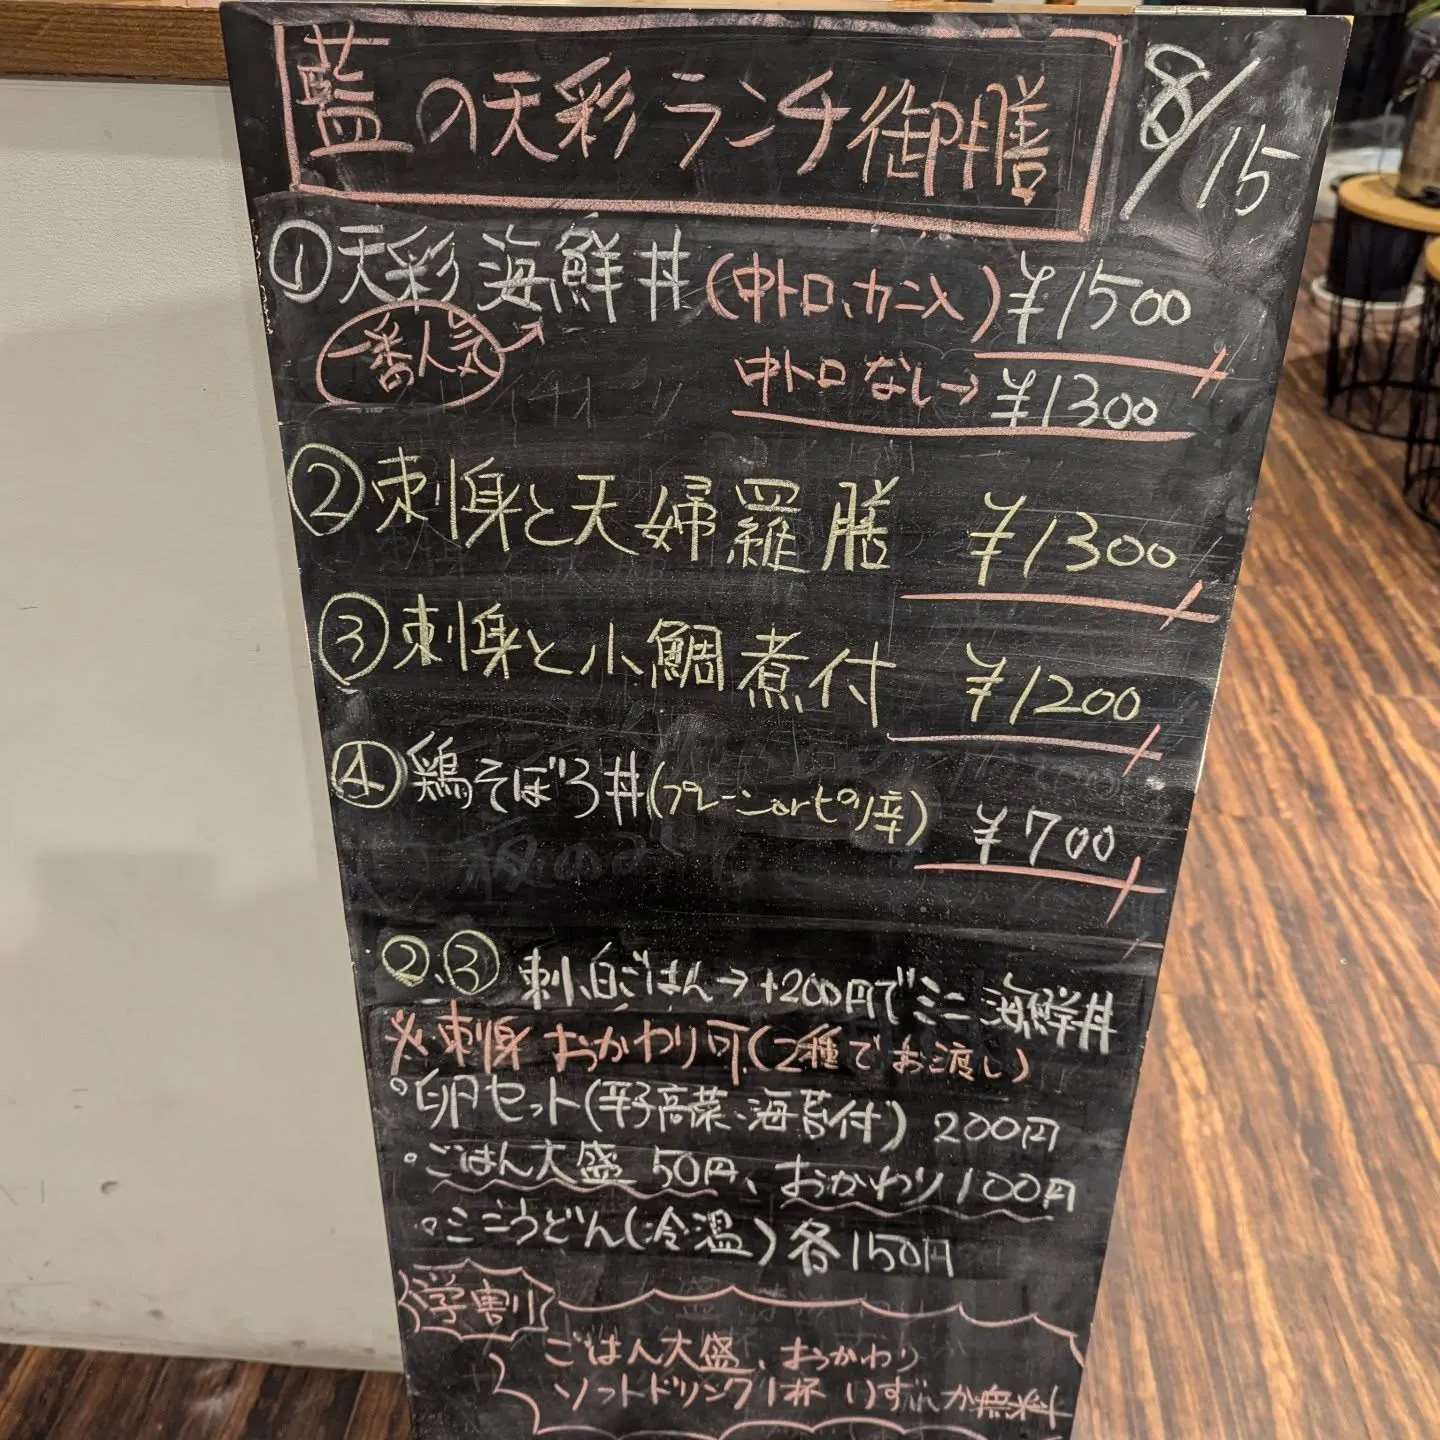 藍の天彩ランチ御膳
8/15
①天彩海鮮丼(中トロ、カニ入)¥1500
一番の人気
中トロなし→¥1300
②刺身と天婦羅膳 ¥1300
③刺身と小鯛煮付 ¥1200
④鶏そぼろ丼(プレーンorピリ辛) ¥700
②、③ 刺、白ごはん→+200円でミニ海鮮丼
※刺身おかわり可(2種でお渡し)
。卵セット(野高菜、海苔付) 200円
。ごはん大盛 50円、おかわり100円
。ミニうどん(冷温)各150円
学割
ごはん大盛、おかわり
ソフトドリンク1杯 いずれか無料